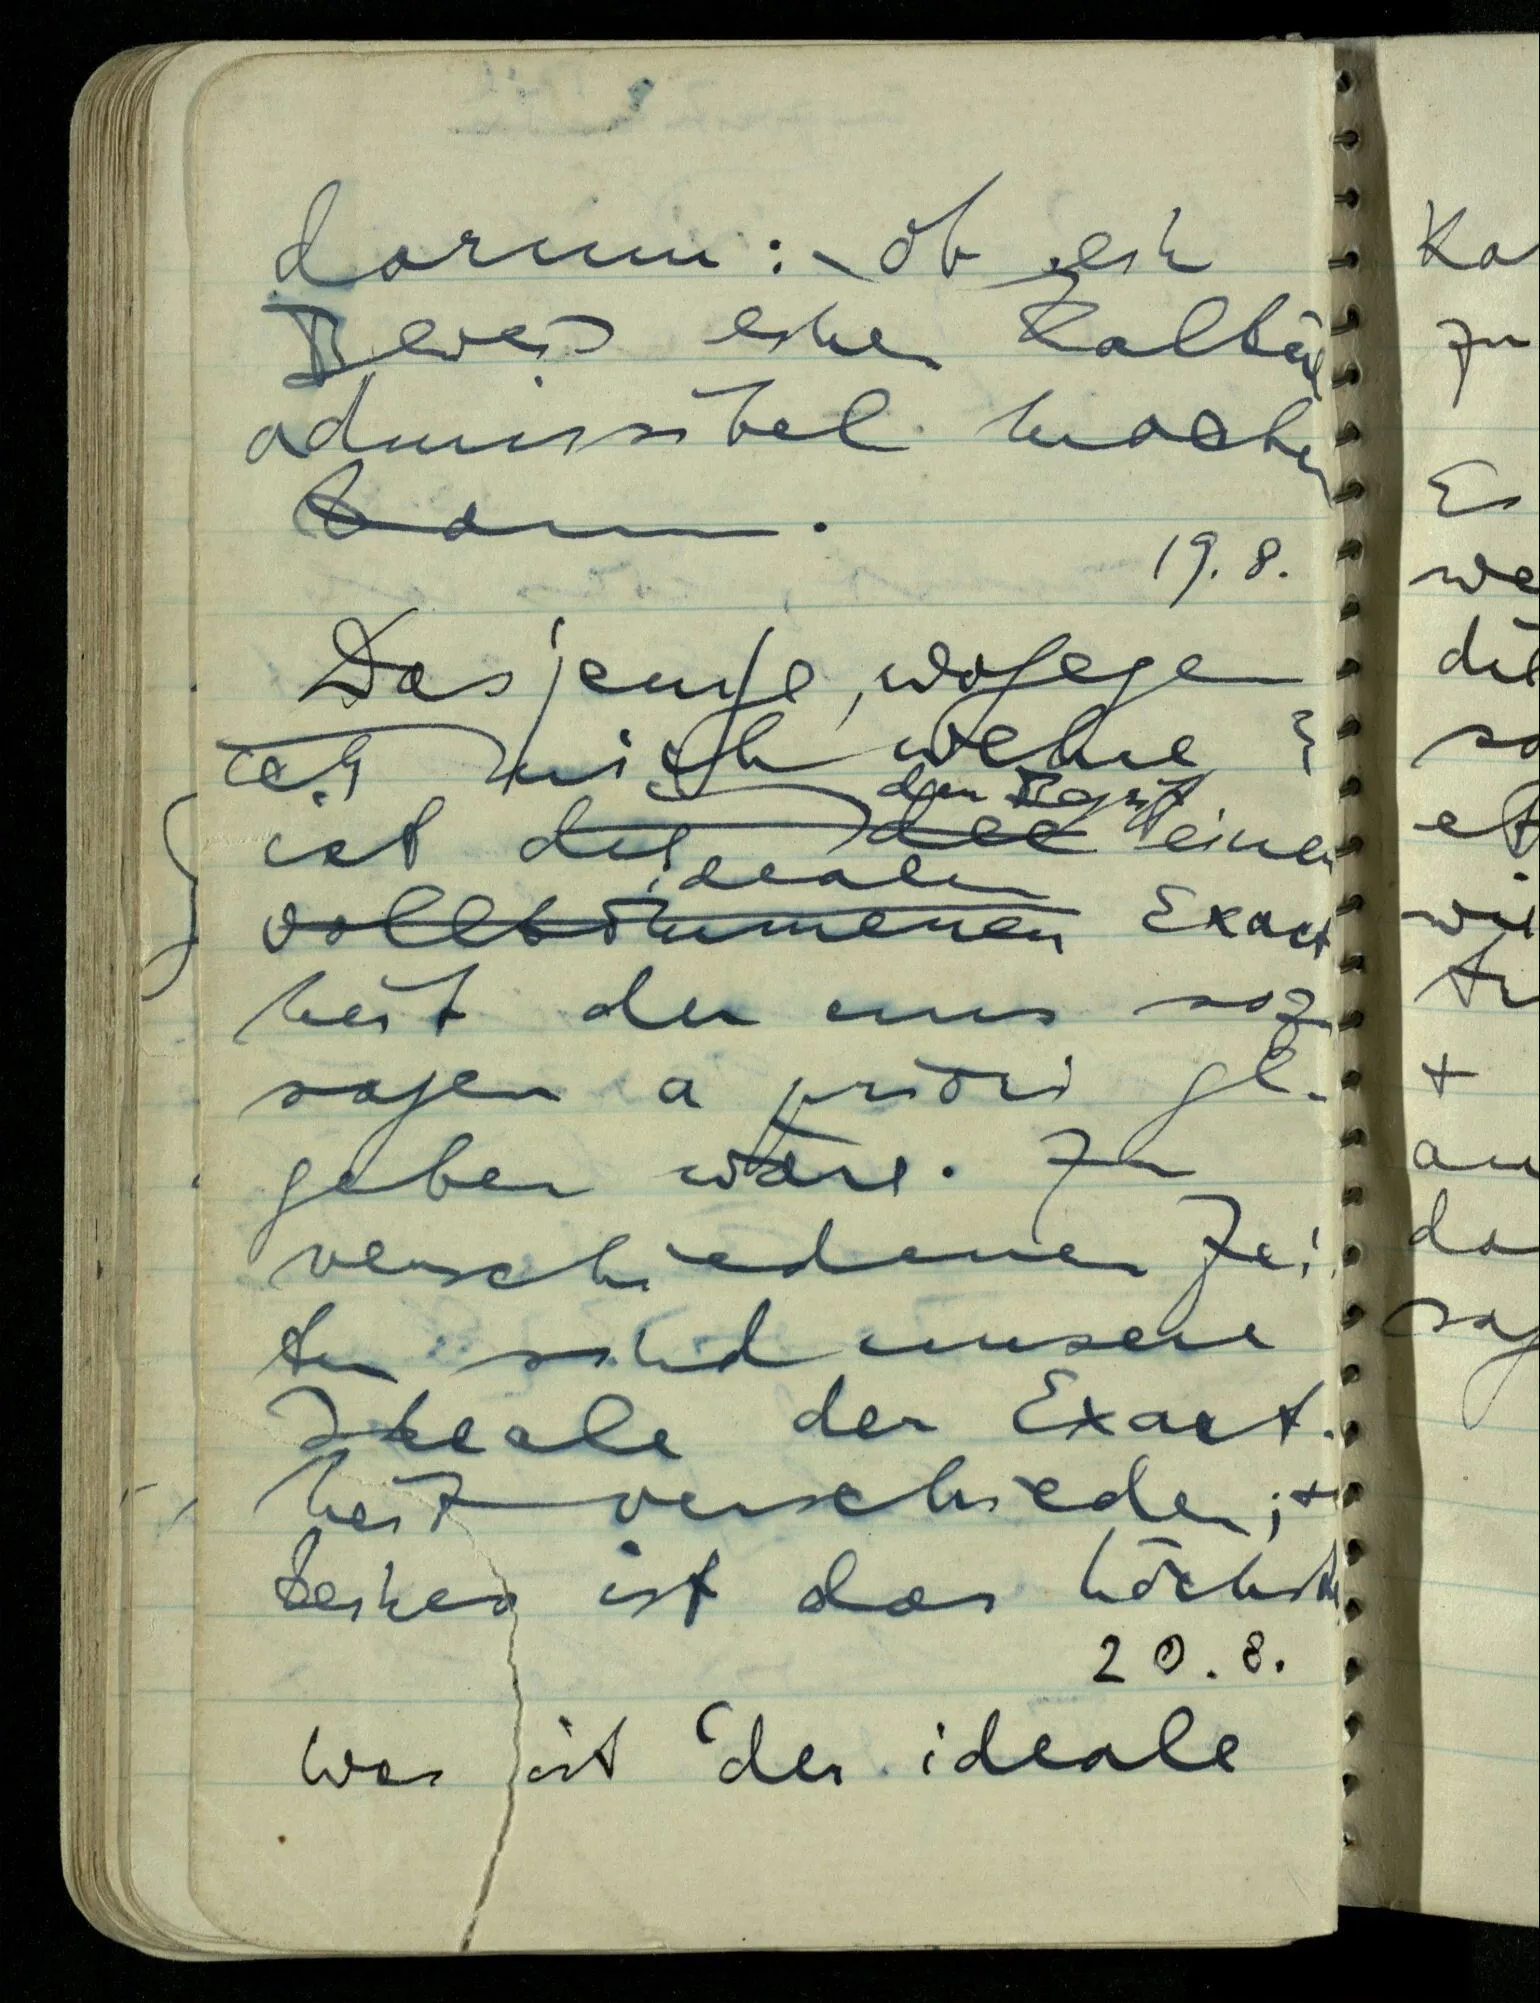 darum: ob ein
Beweis einen Kalkül
admissibel machen
kann.
19.8.
Dasjenige, wogegen
ich mich wehre
ist die der den Begriff einer
vollkommenen idealen Exact
heit der uns soz
sagen a priori ge-
geben wäre. Zu
verschiedenen Zei
ten sind unsere
Ideale der Exact-
heit verschieden; +
keines ist das höchste
20.8.
Was ist der ideale
Ka
zu
Es
we
die
so
et
wie
+
au
da
sag